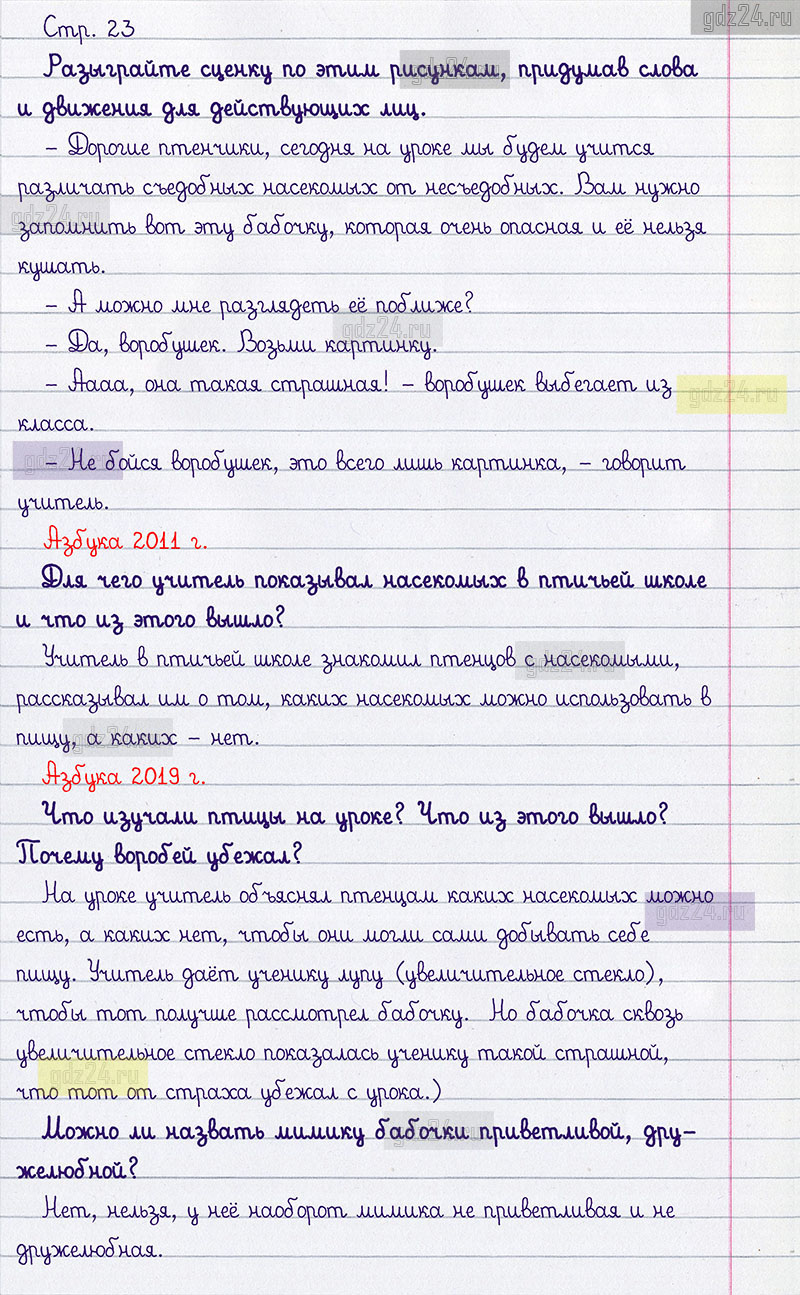 gdz24.ru
Стр. 23
Разыграйте сценку по этим рисункам, придумав слова
и движения для действующих лиц.
– Дорогие птенчики, сегодня на уроке мы будем учится
различать съедобных насекомых от несъедобных. Вам нужно
запомнить вот эту бабочку, которая очень опасная и её нельзя
кушать.
– А можно мне разглядеть её поближе?
– Да, воробушек. Возьми картинку.
– Аааа, она такая страшная! – воробушек выбегает из
класса.
– Не бойся воробушек, это всего лишь картинка, – говорит
учитель.
Азбука 2011 г.
Для чего учитель показывал насекомых в птичьей школе
и что из этого вышло?
Учитель в птичьей школе знакомил птенцов с насекомыми,
рассказывал им о том, каких насекомых можно использовать в
пищу, а каких – нет.
Азбука 2019 г.
Что изучали птицы на уроке? Что из этого вышло?
Почему воробей убежал?
На уроке учитель объяснял птенцам каких насекомых можно
есть, а каких нет, чтобы они могли сами добывать себе
пищу. Учитель даёт ученику лупу (увеличительное стекло),
чтобы тот получше рассмотрел бабочку. Но бабочка сквозь
увеличительное стекло показалась ученику такой страшной,
что тот от страха убежал с урока.)
Можно ли назвать мимику бабочки приветливой, дру–
желюбной?
Нет, нельзя, у неё наоборот мимика не приветливая и не
дружелюбная.